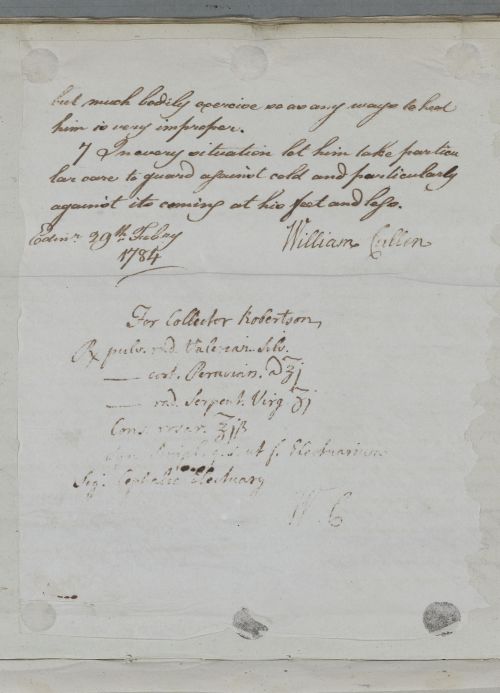 but much bodily exercise so as any ways to heat
him is very improper.
7 In every situation let him take particu
lar care to guard against cold and particularly
against its coming at his feet and legs.
Edinr. 29th. Febry William Cullen
1784
For Collector Robertson,
℞ pulv. rad. Valerian. Silv.
— cort. Peruvian. a ʒj
— rad. Serpent. Virg ʒj
Cons. rosar. ʒjß
Syr. Simpl. q. s. ut f. Electuarium
Sig. Cephalic Electuary
W. C